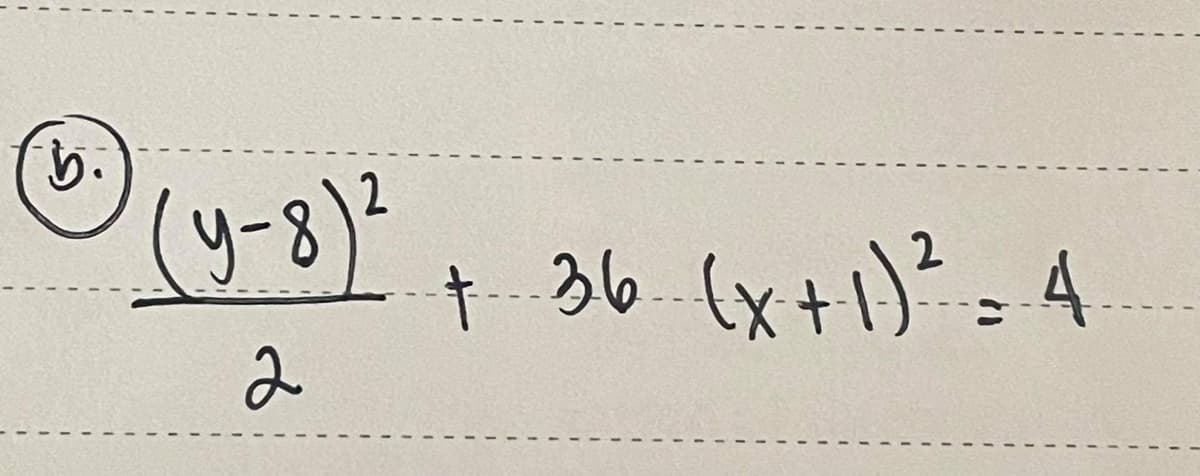 b.
(y-8)²/2 + 36 (x+1)² = 4